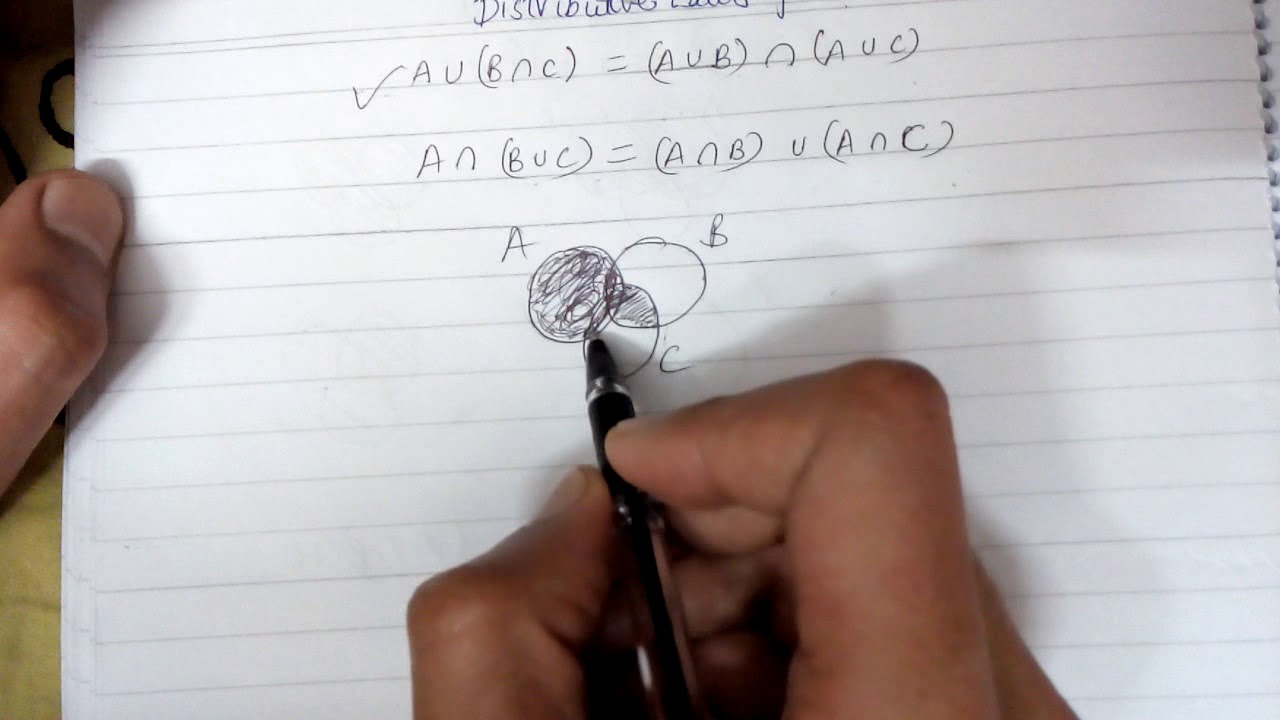 Distributive Laws
✓ A ∪ (B ∩ C) = (A ∪ B) ∩ (A ∪ C)
A ∩ (B ∪ C) = (A ∩ B) ∪ (A ∩ C)
A B
C